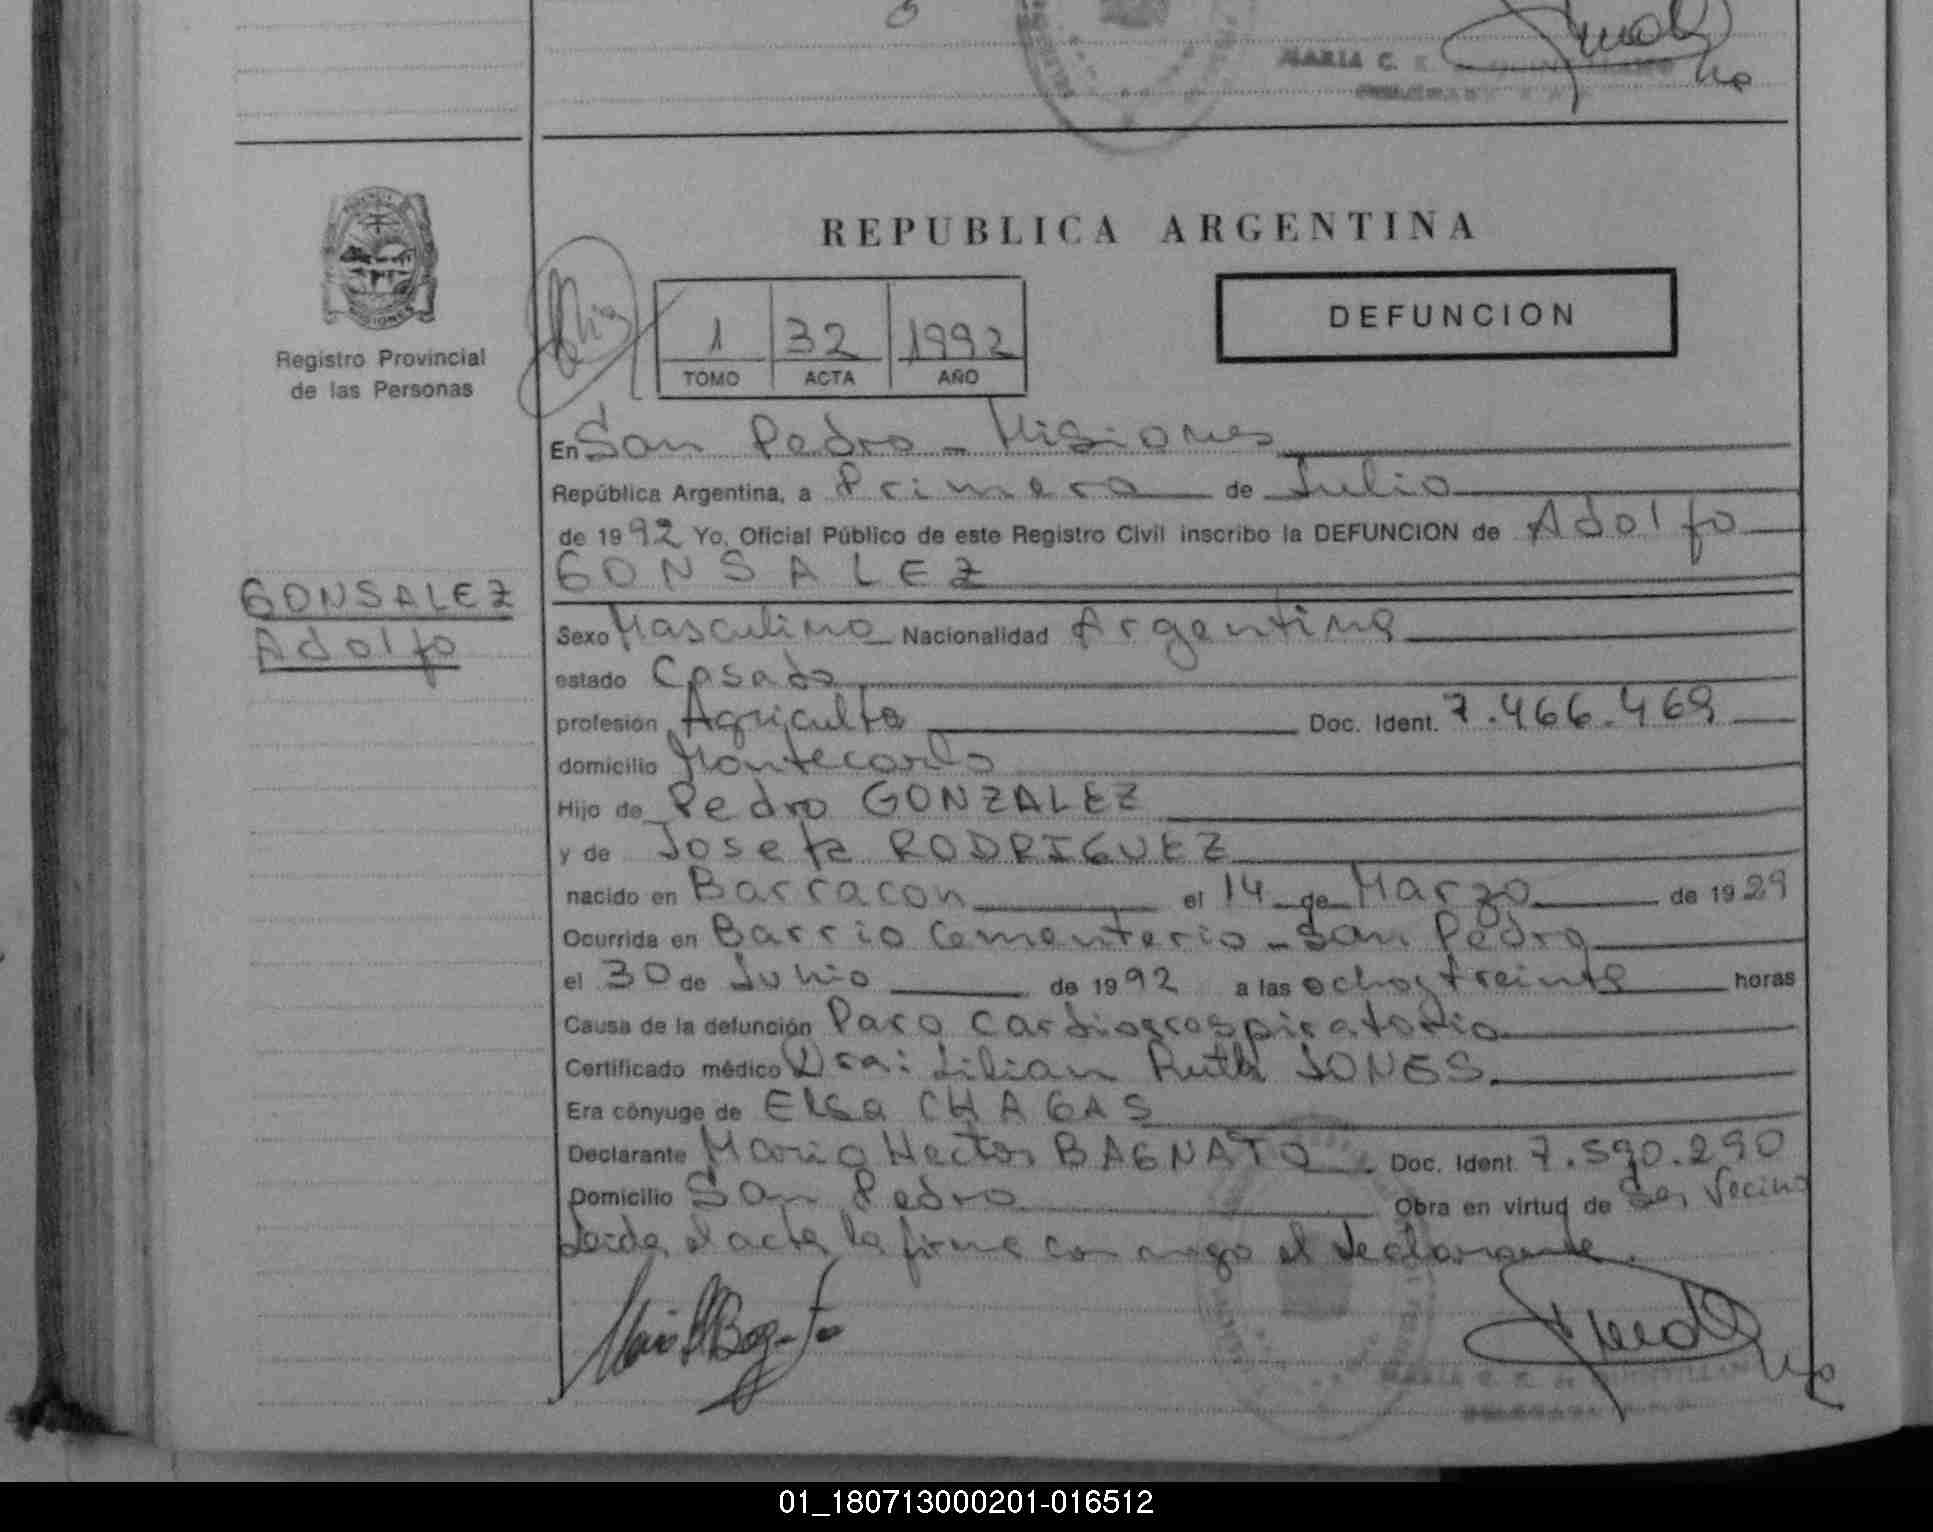 MARIA C.
REPUBLICA ARGENTINA
DEFUNCION
1 32 1992
TOMO ACTA AÑO
Registro Provincial
de las Personas
GONSALEZ
Adolfo
En San Pedro - Misiones
República Argentina, a Primero de Julio
de 1992 Yo, Oficial Público de este Registro Civil inscribo la DEFUNCION de Adolfo
GONSALEZ
Sexo Masculino Nacionalidad Argentina
estado Casado
profesión Agriculto Doc. Ident. 7.466.469
domicilio Montecarlo
Hijo de Pedro GONZALEZ
y de Josefa RODRIGUEZ
nacido en Barracon el 14 de Marzo de 1929
Ocurrida en Barrio Cementerio - San Pedro
el 30 de Junio de 1992 a las ocho y treinta horas
Causa de la defunción Paro Cardiorrespiratorio
Certificado médico Dra: Lilian Ruth JONES
Era cónyuge de Elsa CHAGAS
Declarante Mario Hector BAGNATO Doc. Ident. 7.590.290
Domicilio San Pedro Obra en virtud de Ser Vecino
Leida el acta la firma con migo el declarante.
MARIA C.
01_180713000201-016512